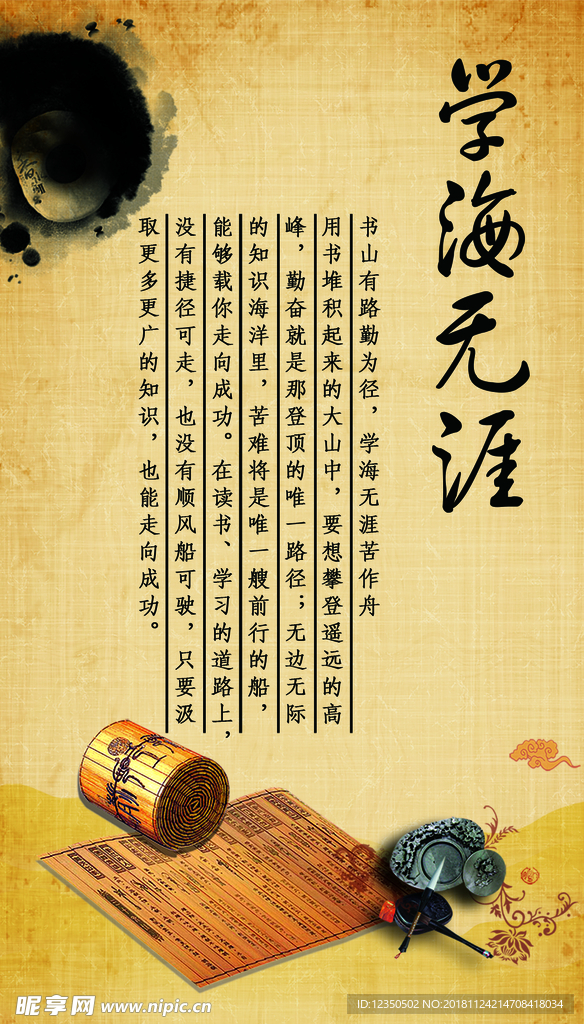 学海无涯
书山有路勤为径，学海无涯苦作舟
用书堆积起来的大山中，要想攀登遥远的高
峰，勤奋就是那登顶的唯一路径；无边无际
的知识海洋里，苦难将是唯一艘前行的船，
能够载你走向成功。在读书、学习的道路上，
没有捷径可走，也没有顺风船可驶，只要汲
取更多更广的知识，也能走向成功。
昵享网 www.nipic.cn
ID:12350502 NO:20181124214708418034